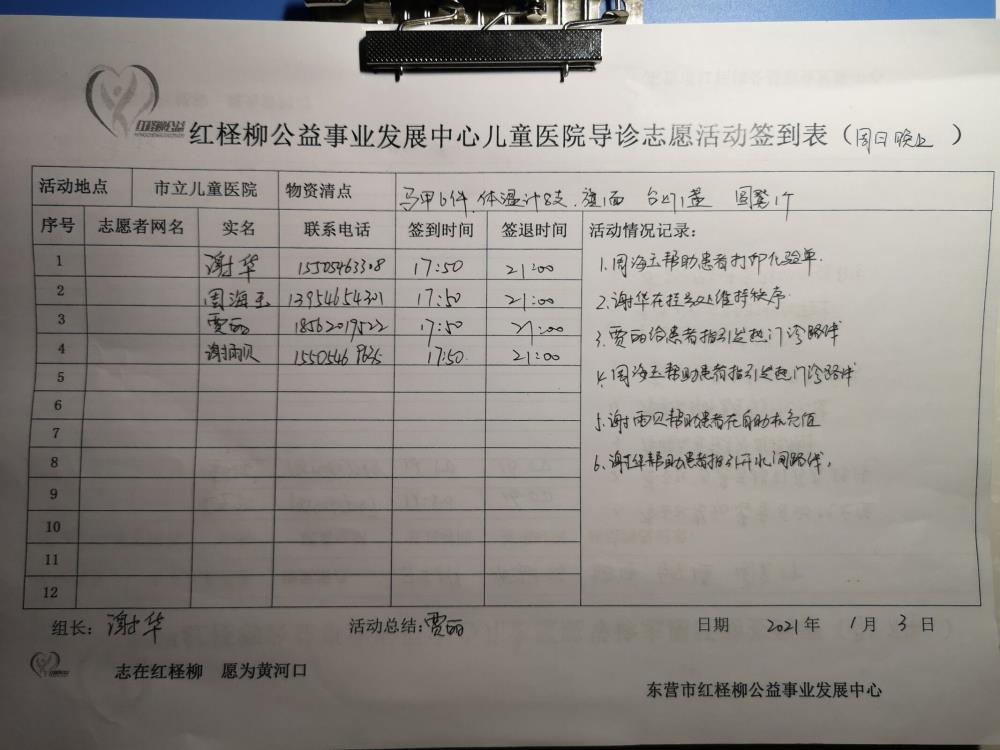 红柽柳公益事业发展中心儿童医院导诊志愿活动签到表（周日晚上）
活动地点 市立儿童医院 物资清点 马甲6件.体温计8支.旗1面 台灯1盏 圆凳1个
序号 志愿者网名 实名 联系电话 签到时间 签退时间 活动情况记录:
1 谢华 15505463308 17:50 21:00
1.周海玉帮助患者打印化验单.
2 周海玉 13954654301 17:50 21:00
2.谢华在挂号处维持秩序
3 贾丽 18562019522 17:50 21:00
3.贾丽给患者指引发热门诊路线
4 谢雨贝 1550546 17:50 21:00
4.周海玉帮助患者指引发热门诊路线
5
5.谢雨贝帮助患者在自助机充值
6
7
6.谢华帮助患者指引开水间路线.
8
9
10
11
12
组长: 谢华 活动总结:贾丽 日期 2021年 1月 3日
志在红柽柳 愿为黄河口
东营市红柽柳公益事业发展中心